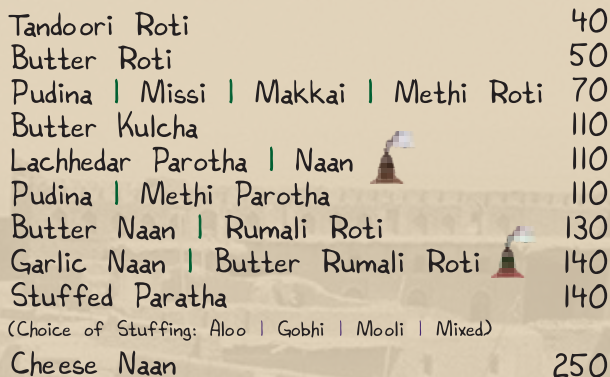 Tandoori Roti 40
Butter Roti 50
Pudina | Missi | Makkai | Methi Roti 70
Butter Kulcha 110
Lachhedar Parotha | Naan 110
Pudina | Methi Parotha 110
Butter Naan | Rumali Roti 130
Garlic Naan | Butter Rumali Roti 140
Stuffed Paratha 140
(Choice of Stuffing: Aloo | Gobhi | Mooli | Mixed)
Cheese Naan 250